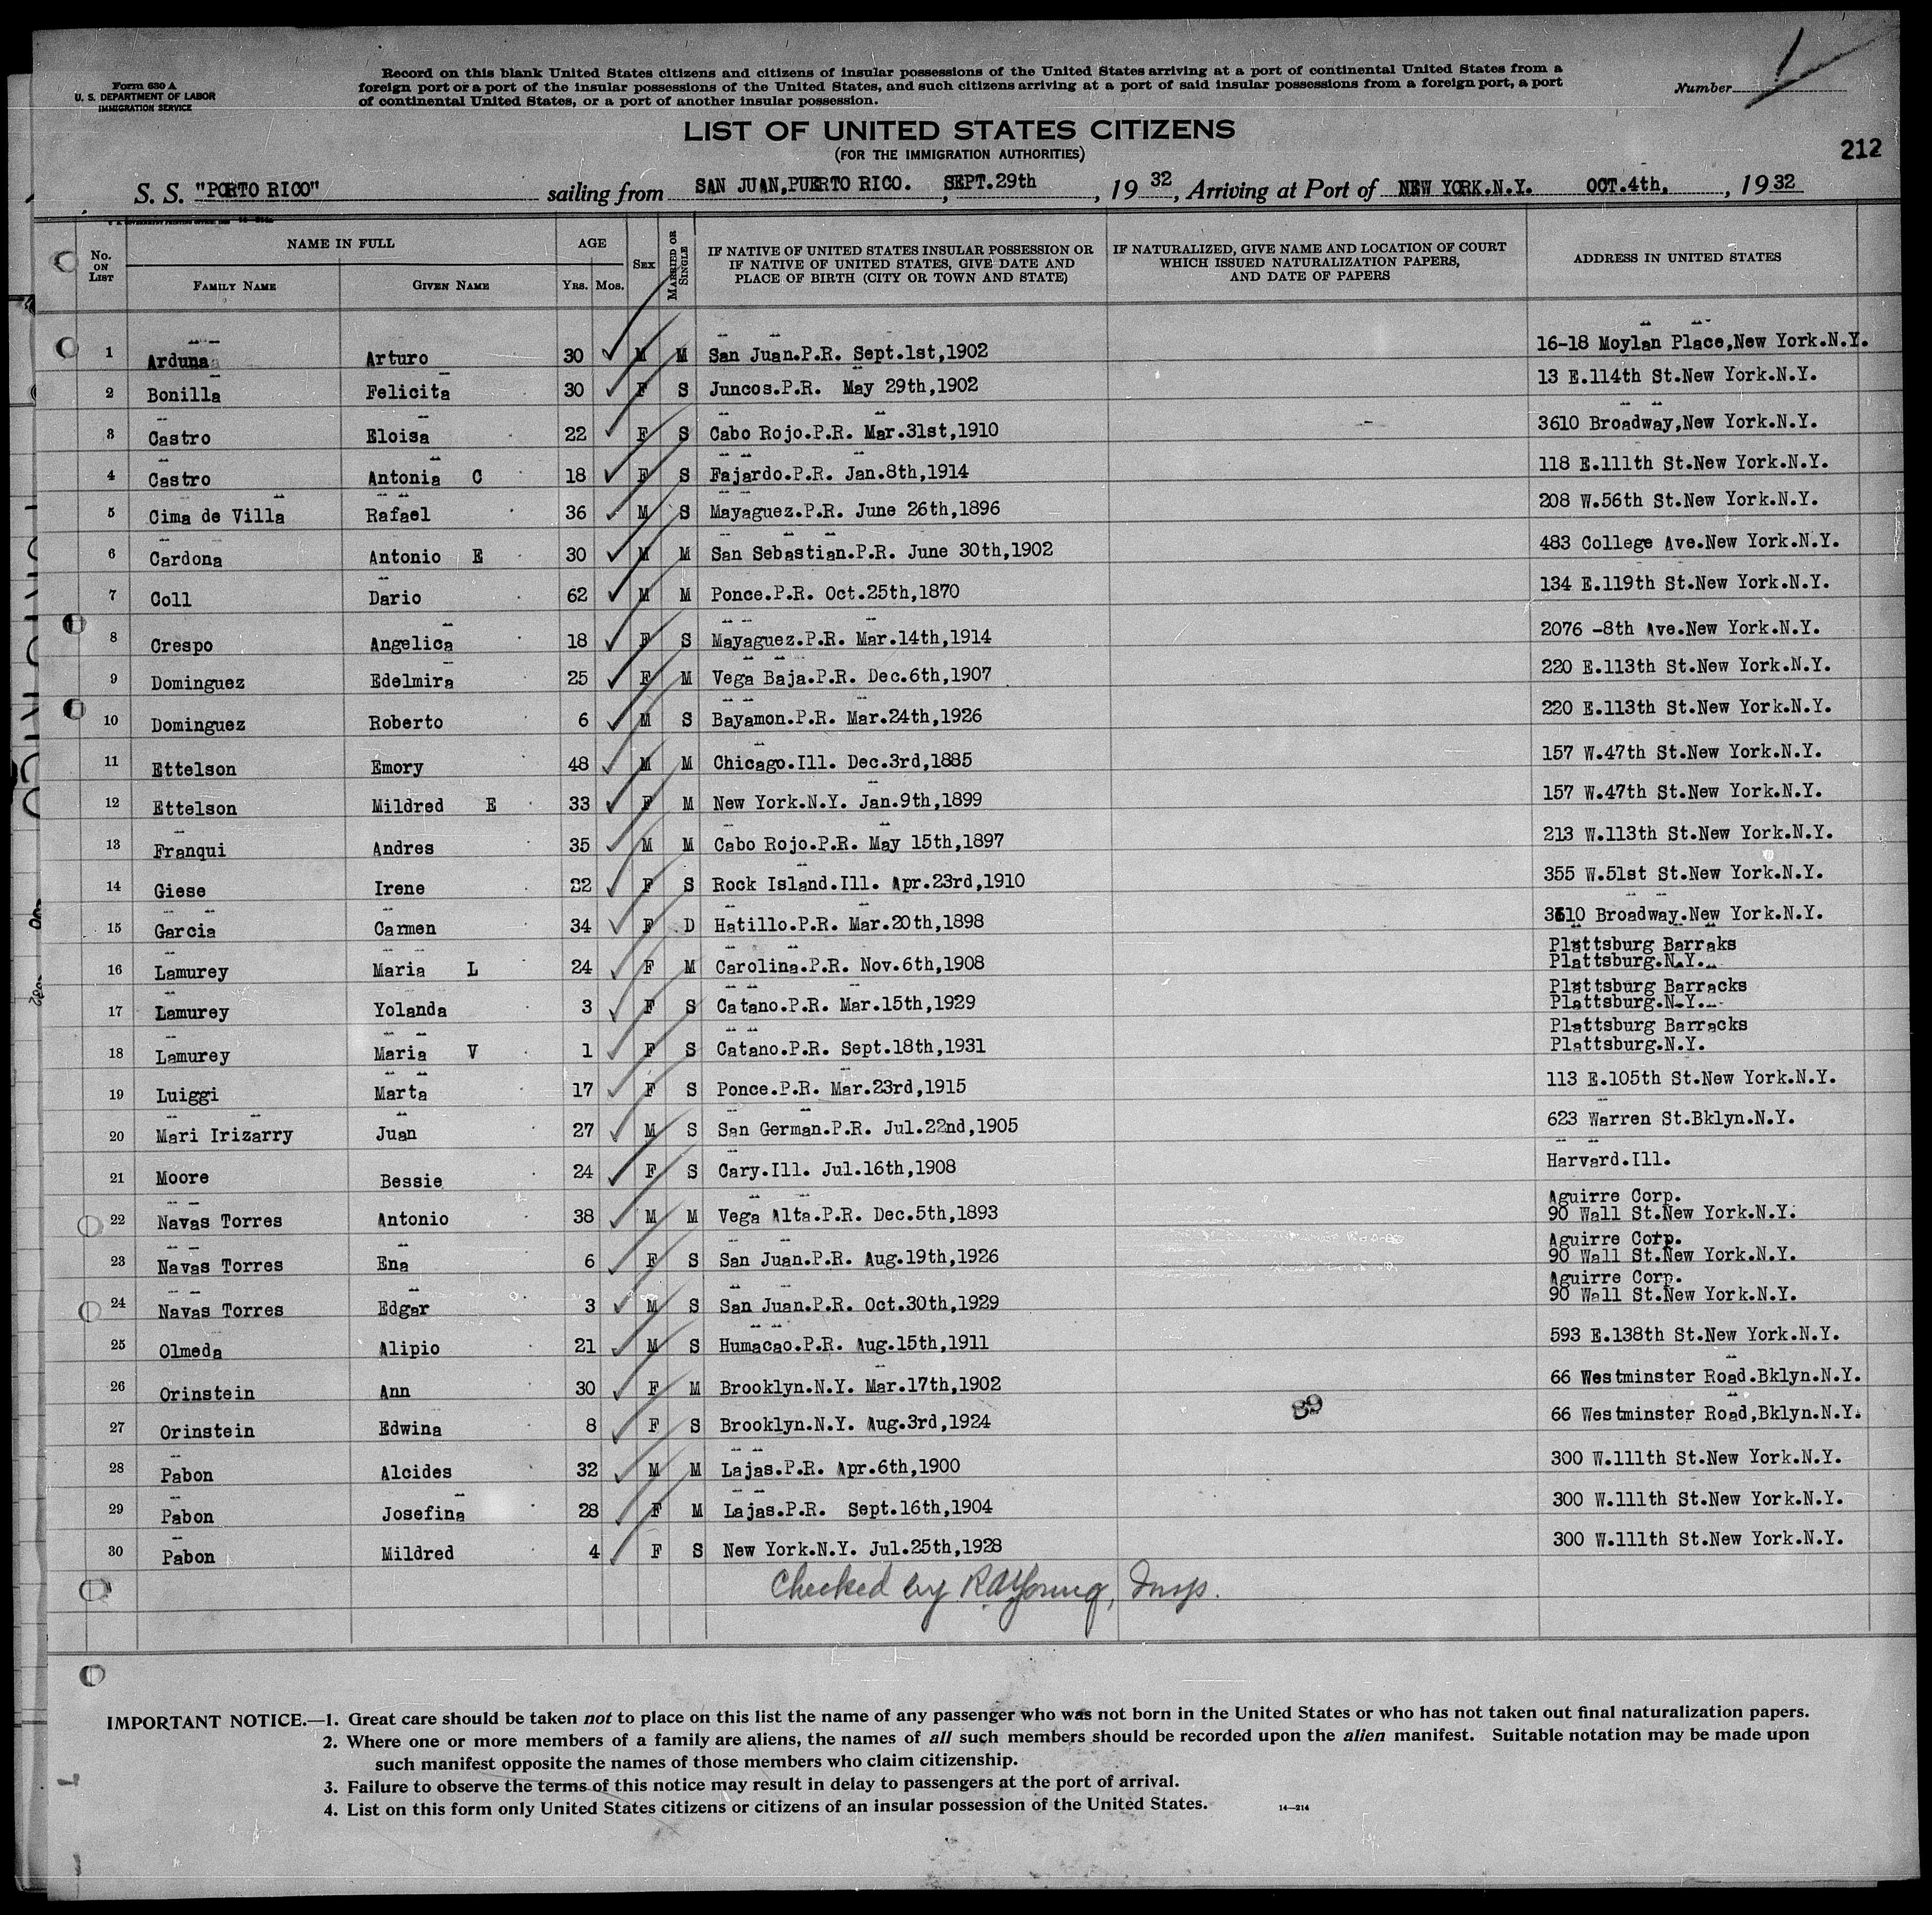 Form 630 A
U. S. DEPARTMENT OF LABOR
IMMIGRATION SERVICE
Record on this blank United States citizens and citizens of insular possessions of the United States arriving at a port of continental United States from a
foreign port or a port of the insular possessions of the United States, and such citizens arriving at a port of said insular possessions from a foreign port, a port
of continental United States, or a port of another insular possession.
Number 1
LIST OF UNITED STATES CITIZENS
(FOR THE IMMIGRATION AUTHORITIES)
212
S. S. "PORTO RICO" sailing from SAN JUAN,PUERTO RICO. SEPT.29th, 1932, Arriving at Port of NEW YORK.N.Y. OCT.4th., 1932
No. ON LIST NAME IN FULL FAMILY NAME GIVEN NAME AGE YRS. MOS. SEX MARRIED OR SINGLE IF NATIVE OF UNITED STATES INSULAR POSSESSION OR IF NATIVE OF UNITED STATES, GIVE DATE AND PLACE OF BIRTH (CITY OR TOWN AND STATE) IF NATURALIZED, GIVE NAME AND LOCATION OF COURT WHICH ISSUED NATURALIZATION PAPERS, AND DATE OF PAPERS ADDRESS IN UNITED STATES
1 Arduna Arturo 30 M M San Juan.P.R. Sept.1st,1902 16-18 Moylan Place,New York.N.Y.
2 Bonilla Felicita 30 F S Juncos.P.R. May 29th,1902 13 E.114th St.New York.N.Y.
3 Castro Eloisa 22 F S Cabo Rojo.P.R. Mar.31st,1910 3610 Broadway,New York.N.Y.
4 Castro Antonia C 18 F S Fajardo.P.R. Jan.8th,1914 118 E.111th St.New York.N.Y.
5 Cima de Villa Rafael 36 M S Mayaguez.P.R. June 26th,1896 208 W.56th St.New York.N.Y.
6 Cardona Antonio E 30 M M San Sebastian.P.R. June 30th,1902 483 College Ave.New York.N.Y.
7 Coll Dario 62 M M Ponce.P.R. Oct.25th,1870 134 E.119th St.New York.N.Y.
8 Crespo Angelica 18 F S Mayaguez.P.R. Mar.14th,1914 2076 -8th Ave.New York.N.Y.
9 Dominguez Edelmira 25 F M Vega Baja.P.R. Dec.6th,1907 220 E.113th St.New York.N.Y.
10 Dominguez Roberto 6 M S Bayamon.P.R. Mar.24th,1926 220 E.113th St.New York.N.Y.
11 Ettelson Emory 48 M M Chicago.Ill. Dec.3rd,1885 157 W.47th St.New York.N.Y.
12 Ettelson Mildred E 33 F M New York.N.Y. Jan.9th,1899 157 W.47th St.New York.N.Y.
13 Franqui Andres 35 M M Cabo Rojo.P.R. May 15th,1897 213 W.113th St.New York.N.Y.
14 Giese Irene 22 F S Rock Island.Ill. Apr.23rd,1910 355 W.51st St.New York.N.Y.
15 Garcia Carmen 34 F D Hatillo.P.R. Mar.20th,1898 3610 Broadway.New York.N.Y.
16 Lamurey Maria L 24 F M Carolina.P.R. Nov.6th,1908 Plattsburg Barraks Plattsburg.N.Y.
17 Lamurey Yolanda 3 F S Catano.P.R. Mar.15th,1929 Plattsburg Barracks Plattsburg.N.Y.
18 Lamurey Maria V 1 F S Catano.P.R. Sept.18th,1931 Plattsburg Barracks Plattsburg.N.Y.
19 Luiggi Marta 17 F S Ponce.P.R. Mar.23rd,1915 113 E.105th St.New York.N.Y.
20 Mari Irizarry Juan 27 M S San German.P.R. Jul.22nd,1905 623 Warren St.Bklyn.N.Y.
21 Moore Bessie 24 F S Cary.Ill. Jul.16th,1908 Harvard.Ill.
22 Navas Torres Antonio 38 M M Vega Alta.P.R. Dec.5th,1893 Aguirre Corp. 90 Wall St.New York.N.Y.
23 Navas Torres Ena 6 F S San Juan.P.R. Aug.19th,1926 Aguirre Corp. 90 Wall St.New York.N.Y.
24 Navas Torres Edgar 3 M S San Juan.P.R. Oct.30th,1929 Aguirre Corp. 90 Wall St.New York.N.Y.
25 Olmeda Alipio 21 M S Humacao.P.R. Aug.15th,1911 593 E.138th St.New York.N.Y.
26 Orinstein Ann 30 F M Brooklyn.N.Y. Mar.17th,1902 66 Westminster Road.Bklyn.N.Y.
27 Orinstein Edwina 8 F S Brooklyn.N.Y. Aug.3rd,1924 66 Westminster Road,Bklyn.N.Y.
28 Pabon Alcides 32 M M Lajas.P.R. Apr.6th,1900 300 W.111th St.New York.N.Y.
29 Pabon Josefina 28 F M Lajas.P.R. Sept.16th,1904 300 W.111th St.New York.N.Y.
30 Pabon Mildred 4 F S New York.N.Y. Jul.25th,1928 300 W.111th St.New York.N.Y.
Checked by R.A.Young, Insp.
IMPORTANT NOTICE.—1. Great care should be taken not to place on this list the name of any passenger who was not born in the United States or who has not taken out final naturalization papers.
2. Where one or more members of a family are aliens, the names of all such members should be recorded upon the alien manifest. Suitable notation may be made upon
such manifest opposite the names of those members who claim citizenship.
3. Failure to observe the terms of this notice may result in delay to passengers at the port of arrival.
4. List on this form only United States citizens or citizens of an insular possession of the United States.
14—214